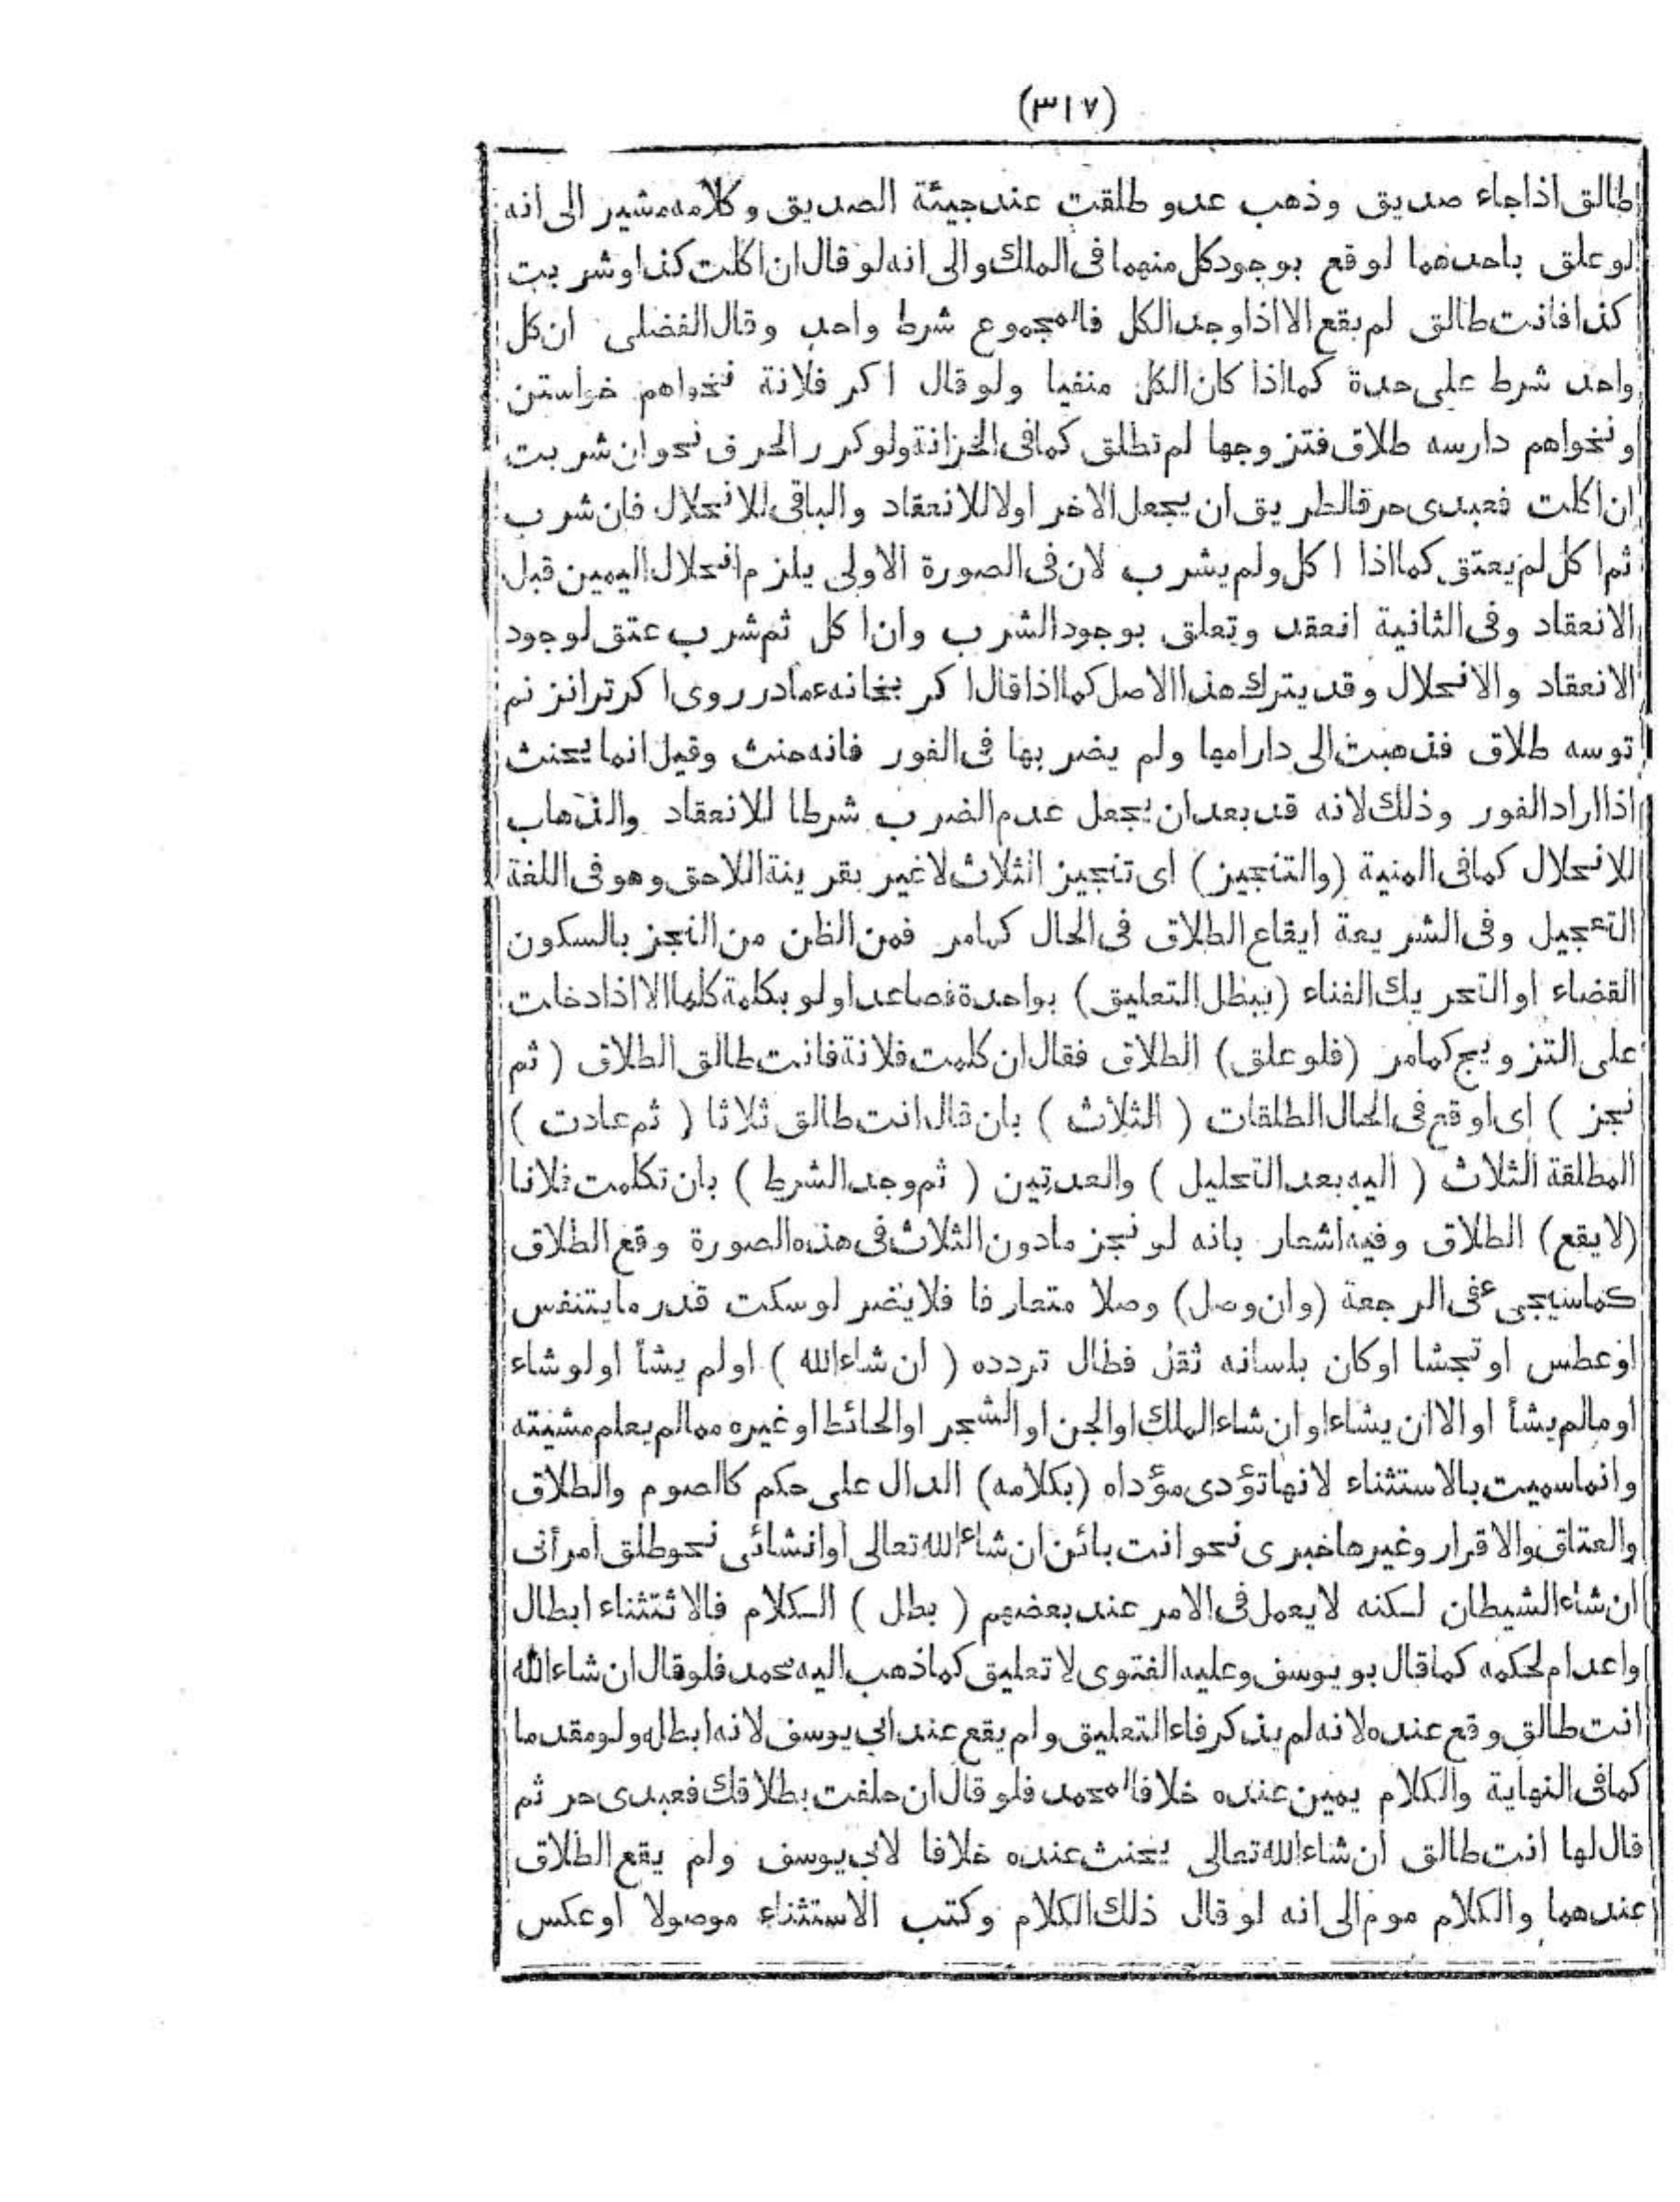 (٣١٧)
طالق اذا جاء صديق وذهب عدو طلقت عند جيئة الصديق وكلامه مشير الى انه
لو علق باحدهما لوقع بوجود كل منهما فى الملك والى انه لو قال ان اكلت كذا وشربت
كذا فانت طالق لم يقع الا اذا وجد الكل فالمجموع شرط واحد وقال الفضلى ان كل
واحد شرط على حدة كما اذا كان الكل منفيا ولو قال اكر فلانة نخواهم خواستن
ونخواهم دارسه طلاق فتزوجها لم تطلق كما فى الخزانة ولو كرر الحرف نحو ان شربت
ان اكلت فعبدى حر فالطريق ان يجعل الاخر اولا للانعقاد والباقى للانحلال فان شرب
ثم اكل لم يعتق كما اذا اكل ولم يشرب لان فى الصورة الاولى يلزم انحلال اليمين قبل
الانعقاد وفى الثانية انعقد وتعلق بوجود الشرب وان اكل ثم شرب عتق لوجود
الانعقاد والانحلال وقد يترك هذا الاصل كما اذا قال اكر بخانه مادر روى اكر ترا نزنم
توسه طلاق فذهبت الى دار امها ولم يضربها فى الفور فانه حنث وقيل انما يحنث
اذا اراد الفور وذلك لانه قد بعد ان يجعل عدم الضرب شرطا للانعقاد والذهاب
للانحلال كما فى المنية (والتنجيز) اى تنجيز الثلاث لا غير بقرينة اللاحق وهو فى اللغة
التعجيل وفى الشريعة ايقاع الطلاق فى الحال كما مر فمن الظن من النجز بالسكون
القضاء او التحريك الفناء (يبطل التعليق) بواحدة فصاعدا ولو بكلمة كلما الا اذا دخلت
على التزويج كما مر (فلو علق) الطلاق فقال ان كلمت فلانة فانت طالق الطلاق (ثم
نجز) اى اوقع فى الحال الطلقات (الثلاث) بان قال انت طالق ثلاثا (ثم عادت)
المطلقة الثلاث (اليه بعد التحليل) والعدتين (ثم وجد الشرط) بان تكلمت فلانا
(لا يقع) الطلاق وفيه اشعار بانه لو نجز ما دون الثلاث فى هذه الصورة وقع الطلاق
كما سيجىء فى الرجعة (وان وصل) وصلا متعارفا فلا يضر لو سكت قدر ما يتنفس
او عطس او تجشا او كان بلسانه ثقل فطال تردده (ان شاء الله) او لم يشأ او لو شاء
او ما لم يشأ او الا ان يشاء او ان شاء الملك او الجن او الشجر او الحائط او غيره مما لم يعلم مشيته
وانما سميت بالاستثناء لانها تؤدى مؤداه (بكلامه) الدال على حكم كالصوم والطلاق
والعتاق والاقرار وغيرها خبرى نحو انت بائن ان شاء الله تعالى او انشائى نحو طلق امرأتى
ان شاء الشيطان لكنه لا يعمل فى الامر عند بعضهم (بطل) الكلام فالاثتثناء ابطال
واعدام لحكمه كما قال بو يوسف وعليه الفتوى لا تعليق كما ذهب اليه محمد فلو قال ان شاء الله
انت طالق وقع عنده لانه لم يذكر فاء التعليق ولم يقع عند ابى يوسف لانه ابطاله ولو مقدما
كما فى النهاية والكلام يمين عنده خلافا لمحمد فلو قال ان حلفت بطلاقك فعبدى حر ثم
قال لها انت طالق ان شاء الله تعالى يحنث عنده خلافا لابى يوسف ولم يقع الطلاق
عندهما والكلام موم الى انه لو قال ذلك الكلام وكتب الاستثناء موصولا او عكس